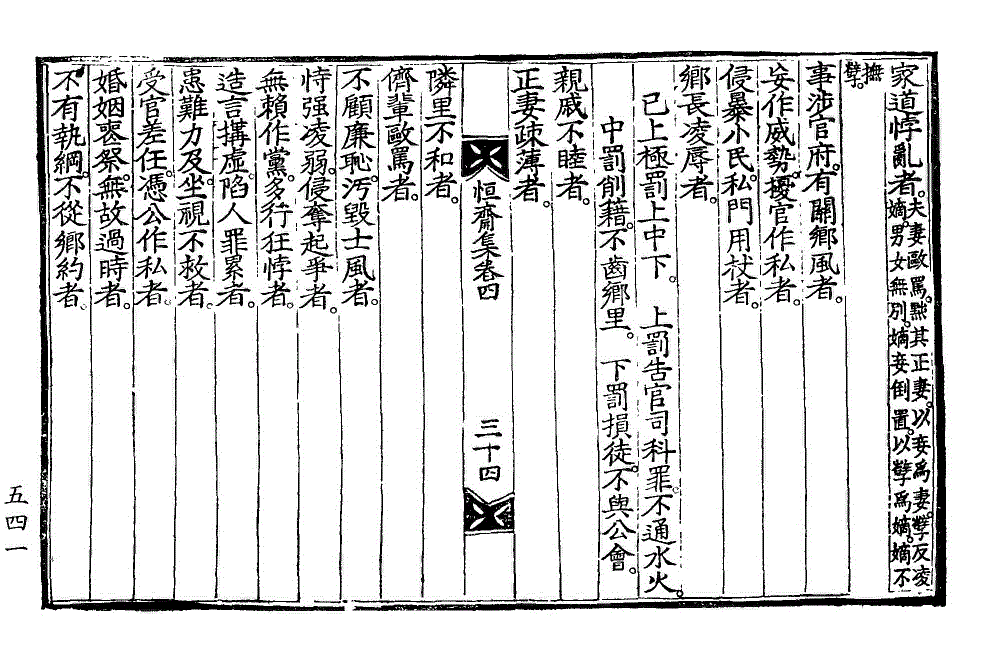 家道悖亂者。夫妻歐罵。黜其正妻。以妾爲妻。孽反凌
嫡。男女無別。嫡妾倒置。以孽爲嫡。嫡不
撫
孽。
事涉官府。有關鄕風者。
妄作威勢。擾官作私者。
侵暴小民。私門用杖者。
鄕長凌辱者。
已上極罰上中下。 上罰告官司科罪。不通水火。
中罰削籍。不齒鄕里。 下罰損徒。不與公會。
親戚不睦者。
正妻疎薄者。
恒齋集卷四 三十四
隣里不和者。
儕輩歐罵者。
不顧廉恥。汚毀士風者。
恃强凌弱。侵奪起爭者。
無賴作黨。多行狂悖者。
造言搆虛。陷人罪累者。
患難力及。坐視不救者。
受官差任。憑公作私者。
婚姻喪祭。無故過時者。
不有執綱。不從鄕約者。
五四一